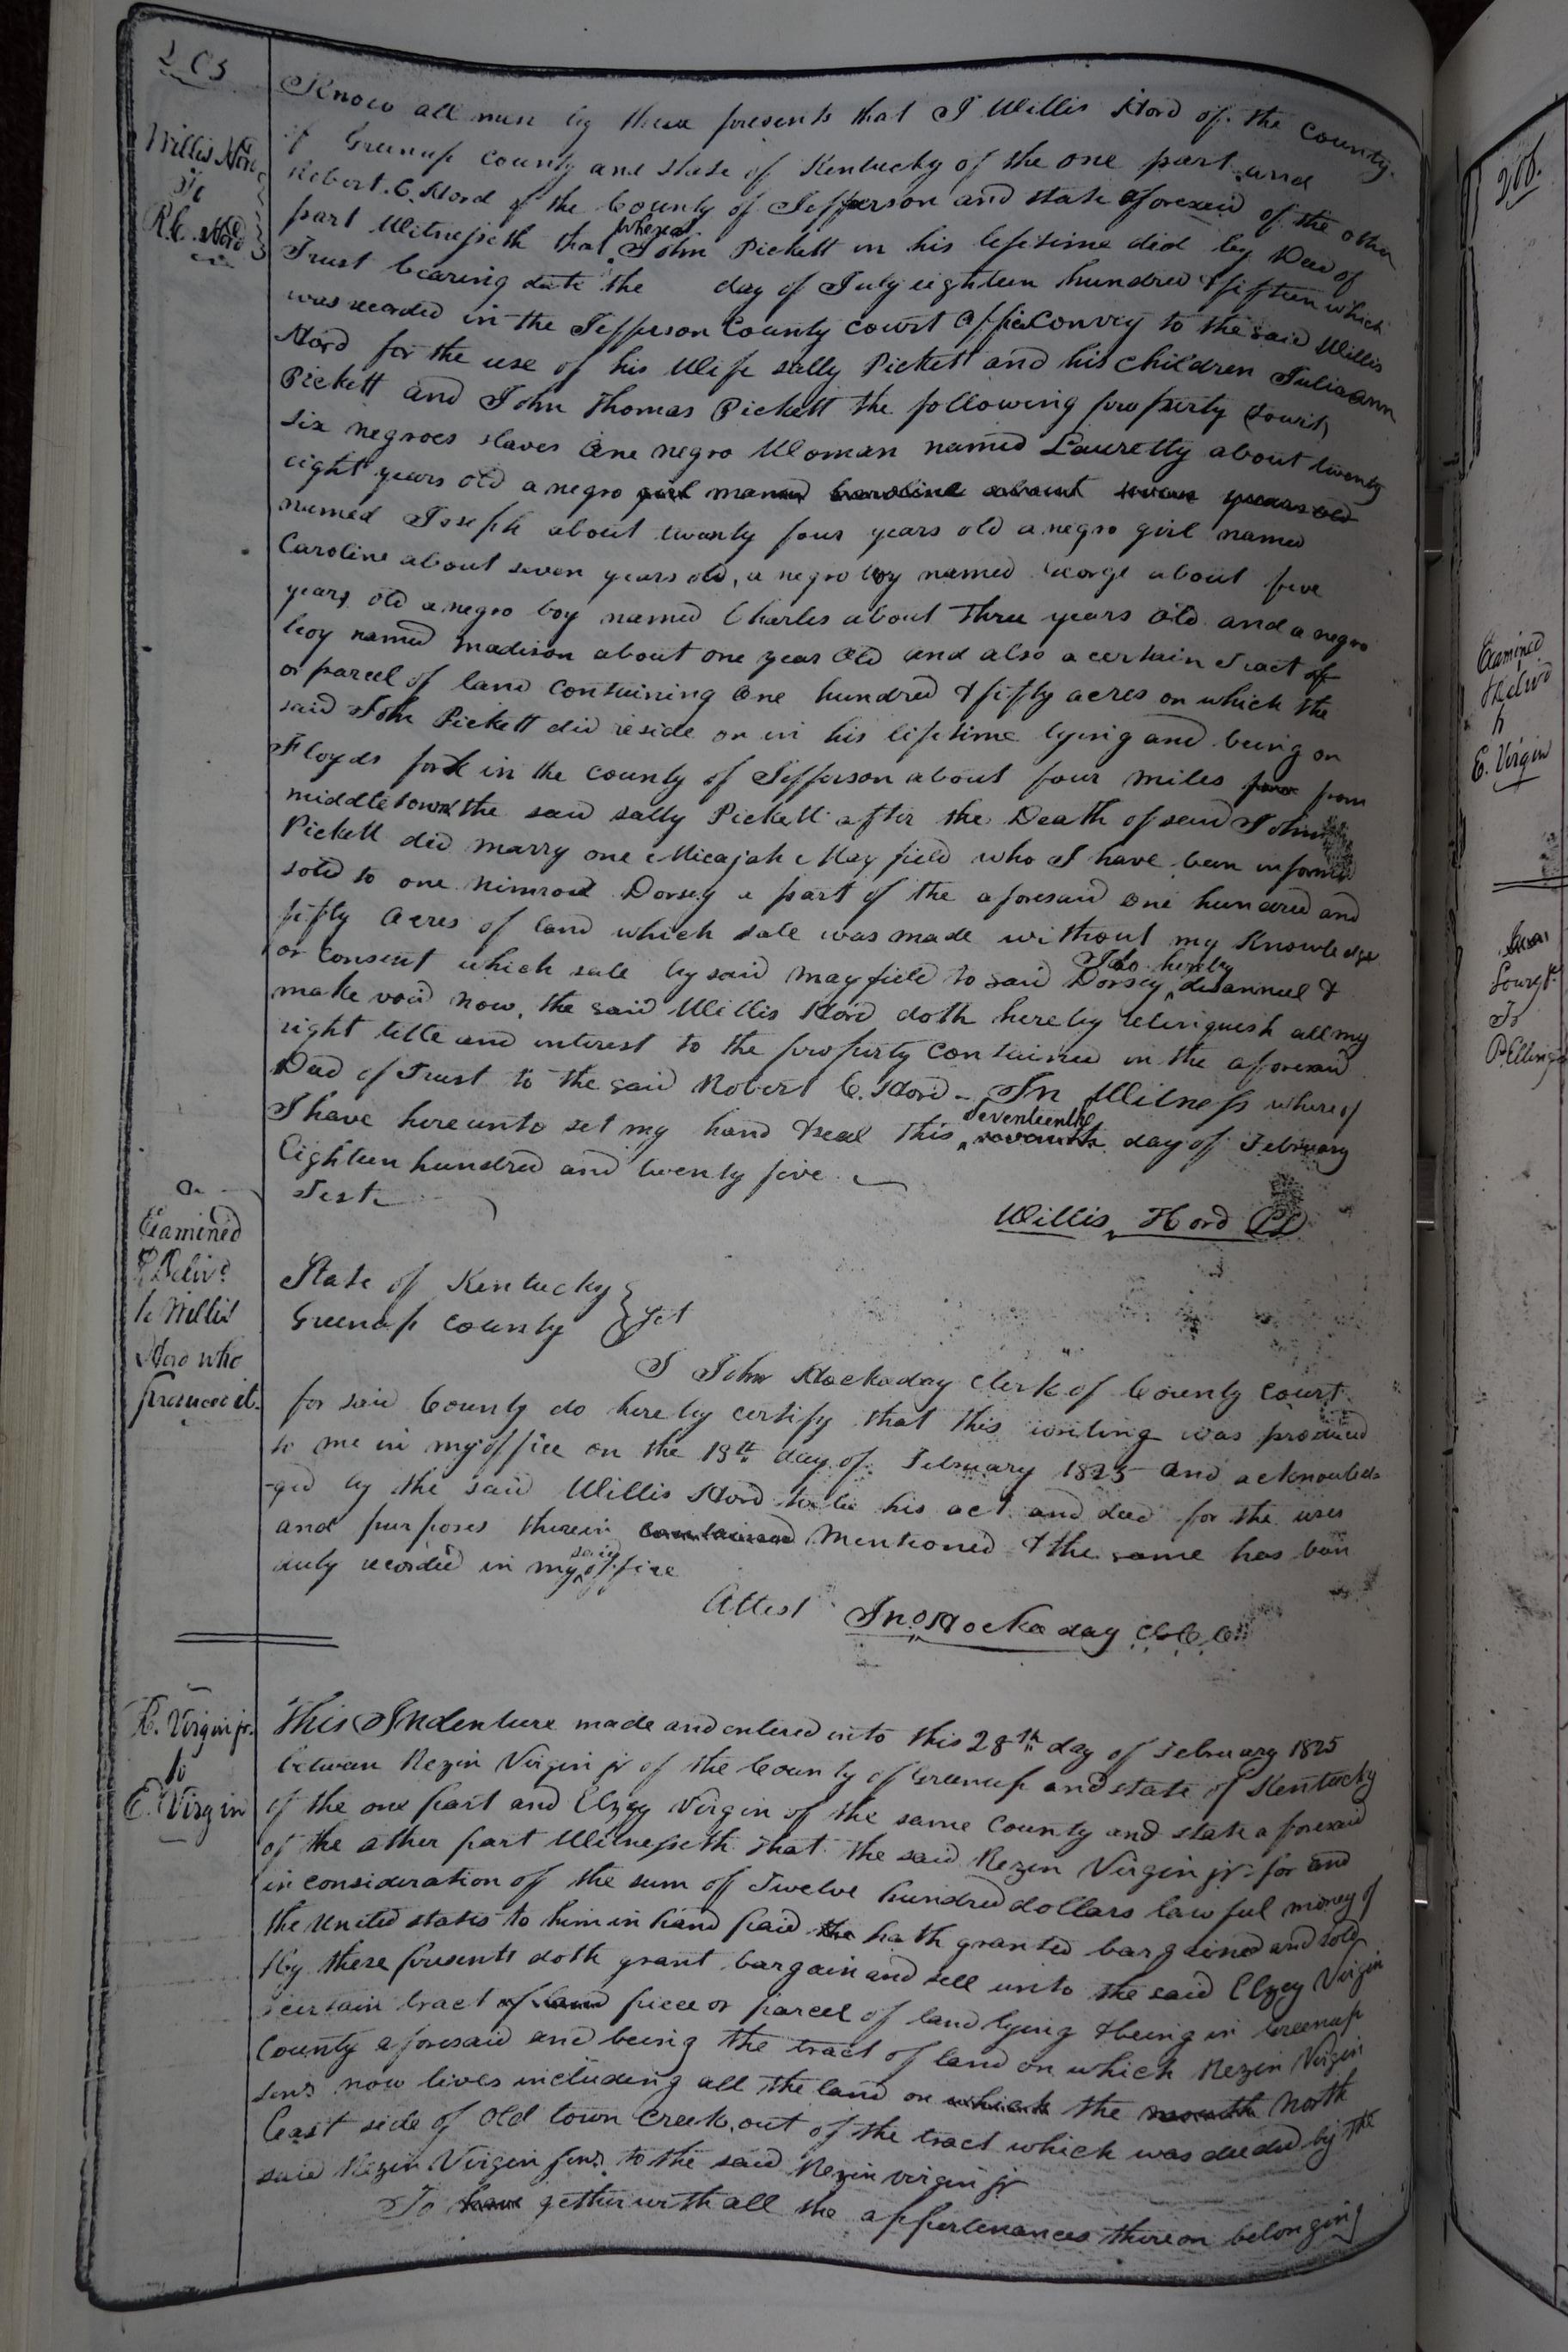 205
Willis Hord
R. C. Hord
Know all men by these presents that I Willis Hord of the County
of Greenup County and state of Kentucky of the one part and
Robert C. Hord of the County of Jefferson and state aforesaid of the other
part Witnesseth that whereas John Pickett in his lifetime did by Deed of
Trust bearing date the day of July eighteen hundred & fifteen which
was recorded in the Jefferson County court office Convey to the said Willis
Hord for the use of his Wife Sally Pickett and his children Juliaann
Pickett and John Thomas Pickett the following property (towit)
Six negroes slaves One negro Woman named Lauretty about twenty
eight years old a negro girl maned Caroline about seven years old
named Joseph about twenty four years old a negro girl named
Caroline about seven years old, a negro boy named George about five
years old a negro boy named Charles about three years old and a negro
boy named Madison about one year old and also a certain Tract of
or parcel of land Containing One hundred & fifty acres on which the
said John Pickett did reside on in his lifetime lying and being on
Floyds fork in the county of Jefferson about four miles from
middletown the said Sally Pickett after the Death of said John
Pickett did marry one Micajah Mayfield who I have been informed
sold to one Nimrod Dorsey a part of the aforesaid one hundred and
fifty Acres of land which sale was made without my Knowledge
or Consent which sale by said Mayfield to said Dorsey I do hereby disannul &
make void now, the said Willis Hord doth hereby relinquish all my
right title and interest to the property contained in the aforesaid
Deed of Trust to the said Robert C. Hord - In Witness whereof
I have hereunto set my hand & seal this seventeenth seventh day of February
Eighteen hundred and twenty five
Teste
Willis Hord
Examined
& Delivd
to Willis
Hord who
produced it.
State of Kentucky
Greenup County Sct
I John Hockaday Clerk of County Court
for said County do hereby certify that this writing was produced
to me in my office on the 18th day of February 1825 and acknowled-
-ged by the said Willis Hord to be his act and deed for the uses
and purposes therein contained Mentioned & the same has been
duly recorded in my said office
Attest Jno. Hockaday C.G.C.C.
R. Virgin jr.
to
E. Virgin
This Indenture made and entered into this 28th day of February 1825
between Rezin Virgin jr of the County of Greenup and state of Kentucky
of the one part and Elzey Virgin of the same County and state aforesaid
of the other part Witnesseth that the said Rezin Virgin jr. for and
in consideration of the sum of Twelve hundred dollars lawful money of
the United states to him in hand paid the hath granted bargained and sold
& by these presents doth grant bargain and sell unto the said Elzey Virgin
a certain tract of land piece or parcel of land lying & being in Greenup
County aforesaid and being the tract of land on which Rezin Virgin
Senr now lives including all the land on which the north North
East side of Old town Creek, out of the tract which was deeded by the
said Rezin Virgin Senr. to the said Rezin Virgin jr
To have gether with all the appertenances thereon belonging
206.
Examined
& Delivd
to
E. Virgin